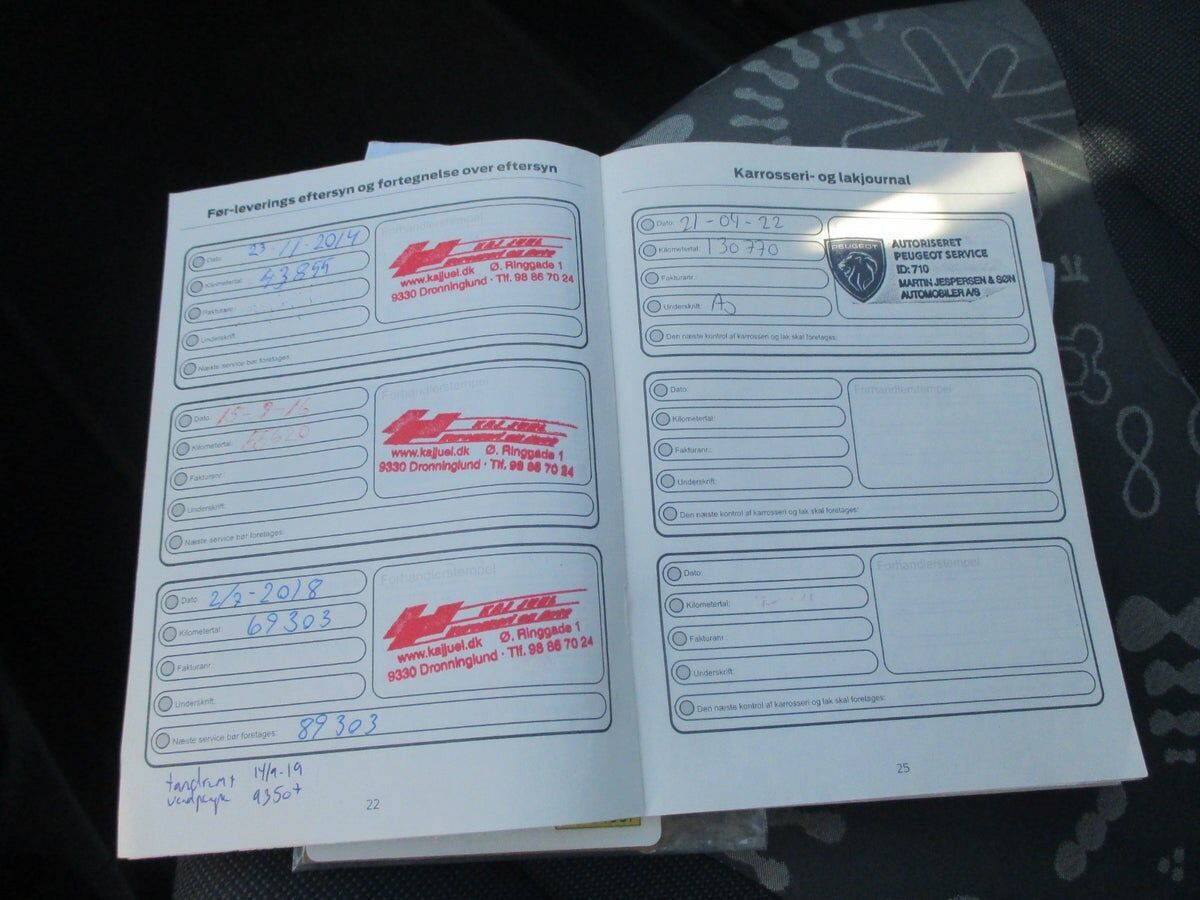 Før-leverings eftersyn og fortegnelse over eftersyn
Dato: 23-11-2014
Kilometertal: 43855
Fakturanr.:
Underskrift:
Næste service bør foretages:
Forhandlerstempel
KAJ JUEL
www.kajjuel.dk Ø. Ringgade 1
9330 Dronninglund · Tlf. 98 86 70 24
Dato: 15-9-16
Kilometertal:
Fakturanr.:
Underskrift:
Næste service bør foretages:
Forhandlerstempel
KAJ JUEL
www.kajjuel.dk Ø. Ringgade 1
9330 Dronninglund · Tlf. 98 86 70 24
Dato: 2/7-2018
Kilometertal: 69303
Fakturanr.:
Underskrift:
Næste service bør foretages: 89303
Forhandlerstempel
KAJ JUEL
www.kajjuel.dk Ø. Ringgade 1
9330 Dronninglund · Tlf. 98 86 70 24
tandrem + 14/9-19
22
Karrosseri- og lakjournal
Dato: 21-04-22
Kilometertal: 130770
Fakturanr.:
Underskrift:
Den næste kontrol af karrosseri og lak skal foretages:
PEUGEOT
AUTORISERET
PEUGEOT SERVICE
ID:710
MARTIN JESPERSEN & SØN
AUTOMOBILER A/S
Dato:
Kilometertal:
Fakturanr.:
Underskrift:
Den næste kontrol af karrosseri og lak skal foretages:
Forhandlerstempel
Dato:
Kilometertal:
Fakturanr.:
Underskrift:
Den næste kontrol af karrosseri og lak skal foretages:
Forhandlerstempel
25